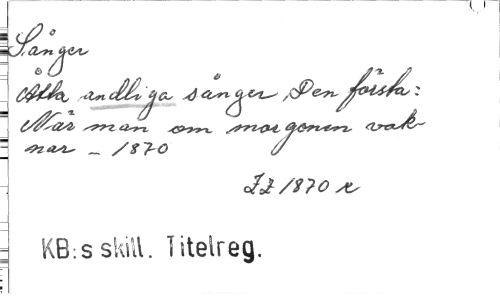 Sånger
Åtta andliga sånger. Den första:
När man om morgonen vak-
nar - 1870
ZZ 1870 r
KB:s skill. Titelreg.